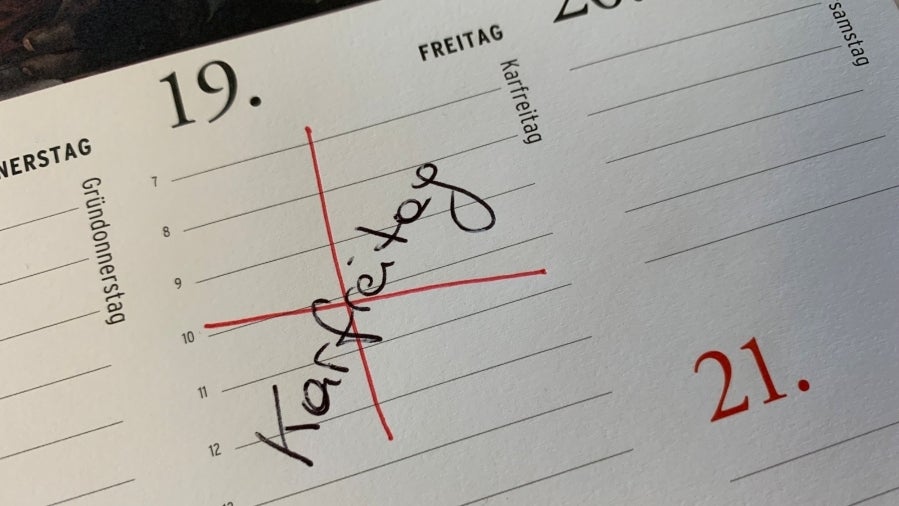 NERSTAG
Gründonnerstag
19.
FREITAG
Karfreitag
7
8
9
10
11
12
Karfreitag
samstag
21.